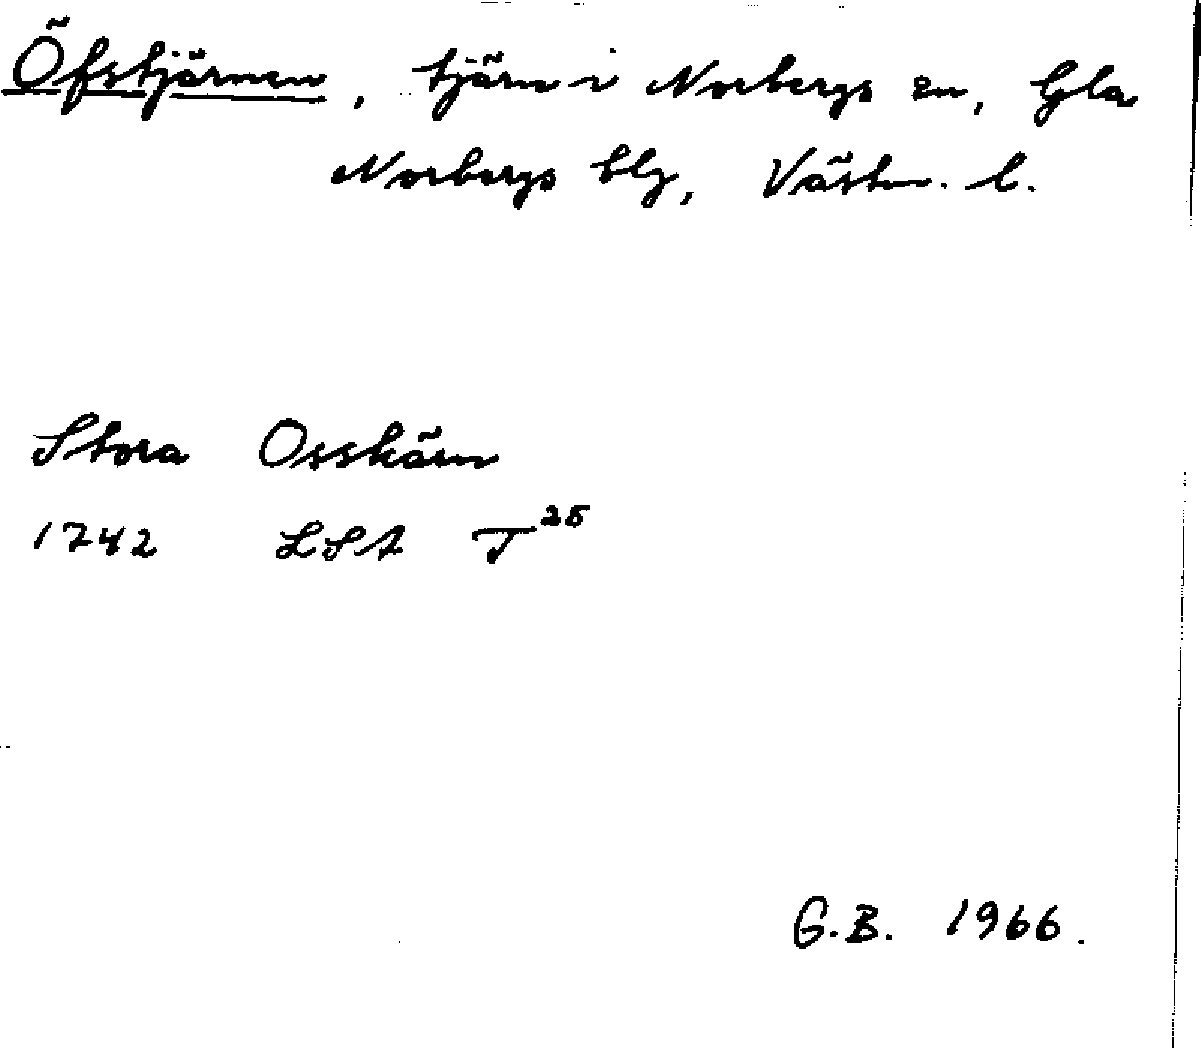 Öfstjärnen, tjärn i Norbergs sn, Gla
Norbergs blg, Västm. l.
Stora Osstiärn
1742 LSA T²⁵
G.B. 1966.